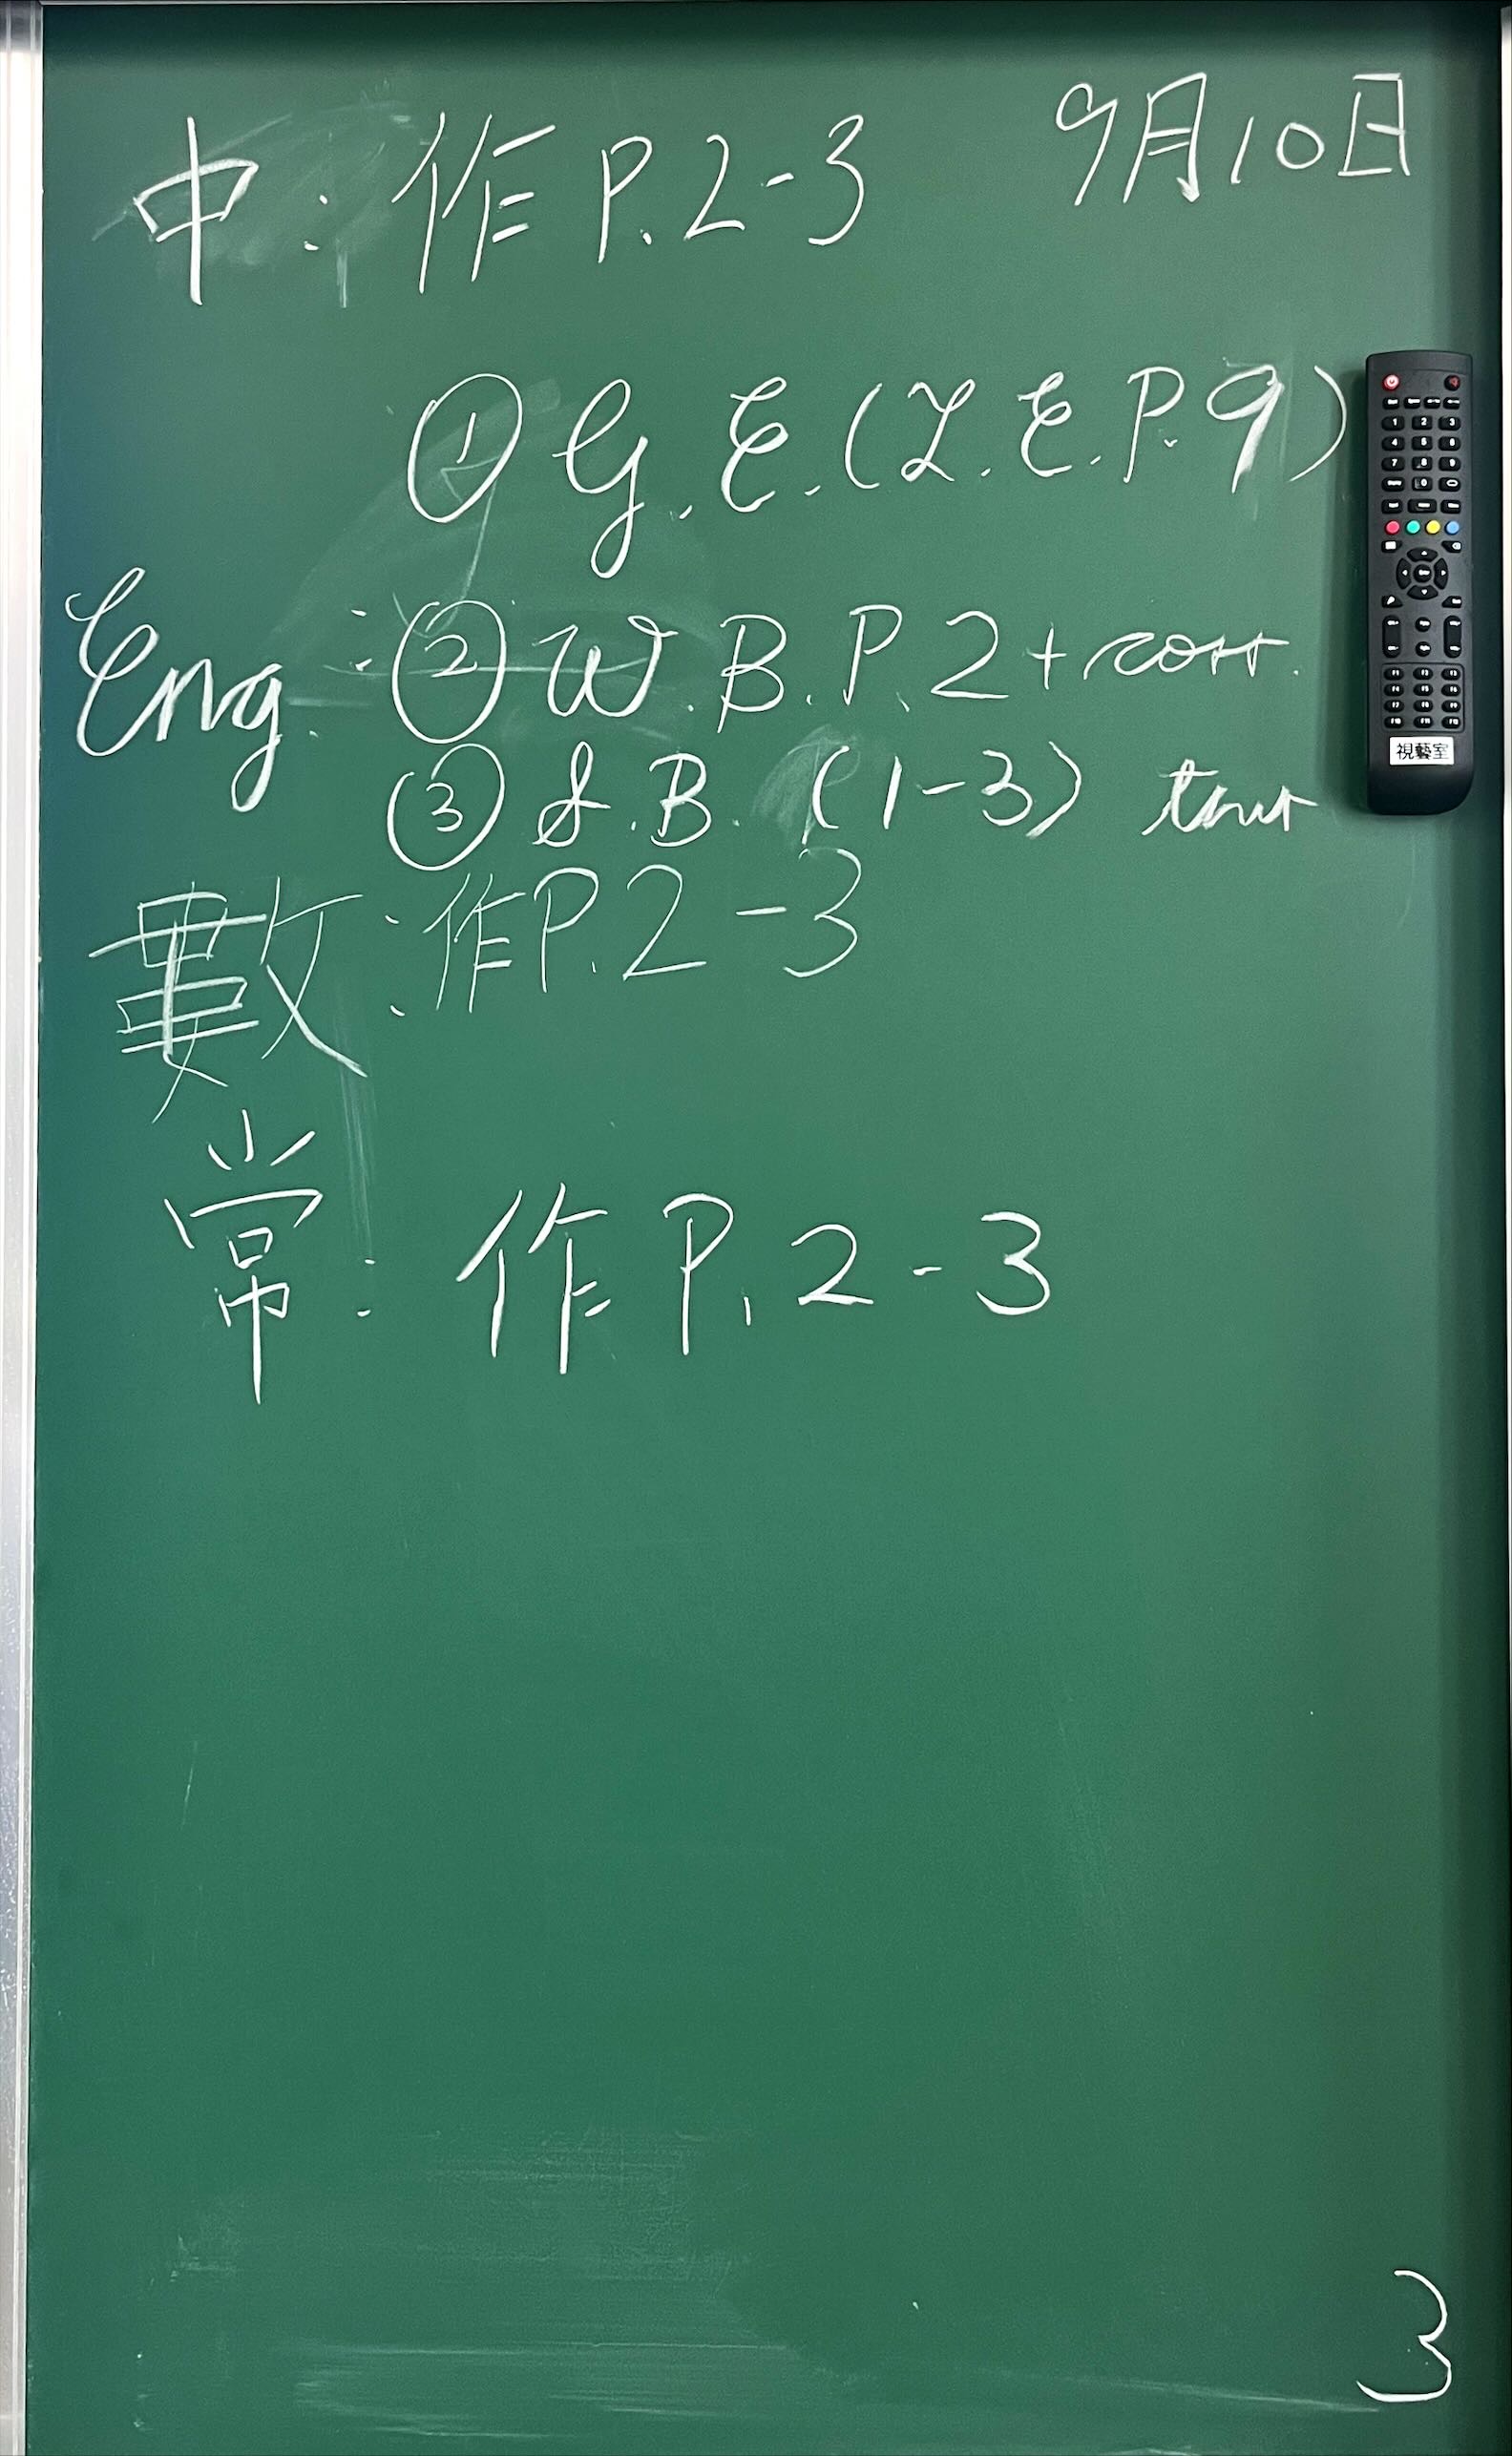 9月10日
中：作P.2-3
① G.E.(L.E.P.9)
Eng：② W.B.P.2+corr.
③ S.B. (1-3)
數：作P.2-3
常：作P.2-3
視藝室
3